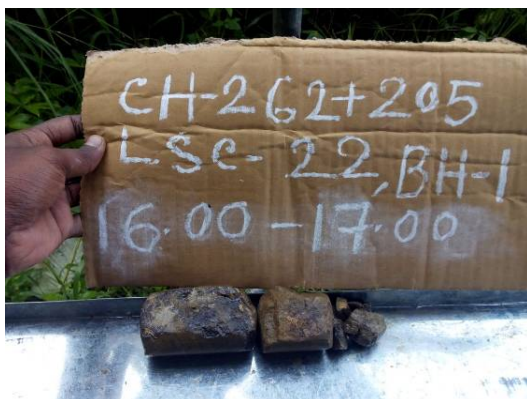 CH-262+205
LSC-22, BH-1
16.00-17.00